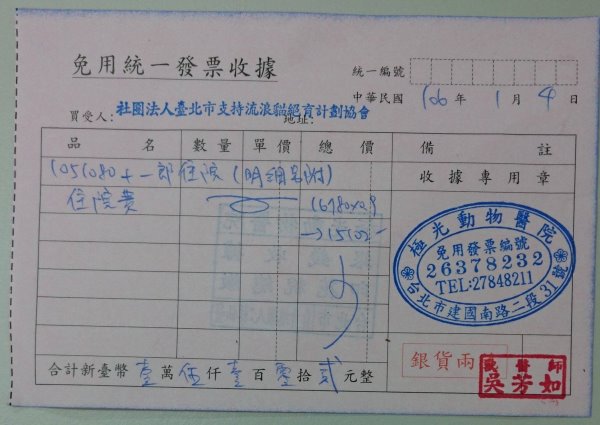 免用統一發票收據
統一編號
中華民國 106 年 1 月 4 日
買受人: 社團法人臺北市支持流浪貓絕育計劃協會 地址:
品名 數量 單價 總價 備註
1051080 十一郎 住院 (明細另附) 收據專用章
住院費 16780×0.9
→15102-
極光動物醫院
免用發票編號
26378232
TEL:27848211
台北市建國南路二段31號
銀貨兩
獸醫師
吳芳如
合計新臺幣 壹 萬 伍 仟 壹 百 零 拾 貳 元整